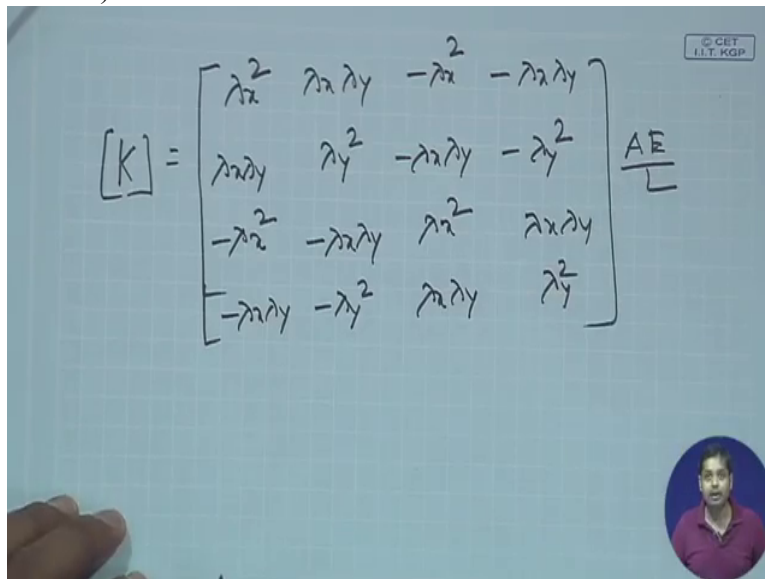 © CET
I.I.T. KGP
λx² λxλy -λx² -λxλy
[K] = λxλy λy² -λxλy -λy² AE/L
-λx² -λxλy λx² λxλy
-λxλy -λy² λxλy λy²